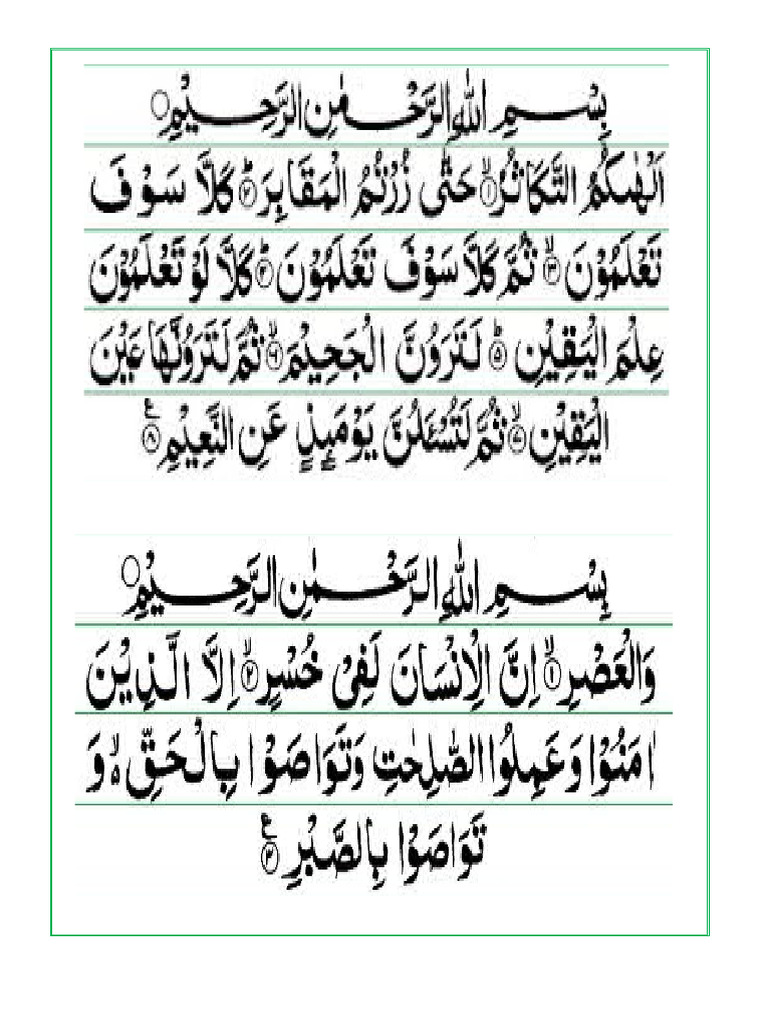 بِسْمِ اللهِ الرَّحْمٰنِ الرَّحِيْمِ ○
اَلْهٰىكُمُ التَّكَاثُرُ ۙ﴿۱﴾ حَتّٰى زُرْتُمُ الْمَقَابِرَ ؕ﴿۲﴾ كَلَّا سَوْفَ
تَعْلَمُوْنَ ۙ﴿۳﴾ ثُمَّ كَلَّا سَوْفَ تَعْلَمُوْنَ ؕ﴿۴﴾ كَلَّا لَوْ تَعْلَمُوْنَ
عِلْمَ الْيَقِيْنِ ؕ﴿۵﴾ لَتَرَوُنَّ الْجَحِيْمَ ۙ﴿۶﴾ ثُمَّ لَتَرَوُنَّهَا عَيْنَ
الْيَقِيْنِ ۙ﴿۷﴾ ثُمَّ لَتُسْـَٔلُنَّ يَوْمَىِٕذٍ عَنِ النَّعِيْمِ ﴿۸﴾ ع
بِسْمِ اللهِ الرَّحْمٰنِ الرَّحِيْمِ ○
وَالْعَصْرِ ۙ﴿۱﴾ اِنَّ الْاِنْسَانَ لَفِىْ خُسْرٍ ۙ﴿۲﴾ اِلَّا الَّذِيْنَ
اٰمَنُوْا وَعَمِلُوا الصّٰلِحٰتِ وَتَوَاصَوْا بِالْحَقِّ ۙ۬ وَ
تَوَاصَوْا بِالصَّبْرِ ﴿۳﴾ ع